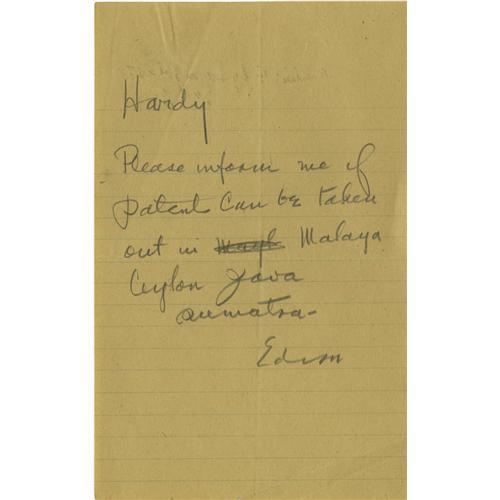 Hardy
Please inform me if
patent can be taken
out in Malaya
Ceylon Java
Sumatra-
Edison